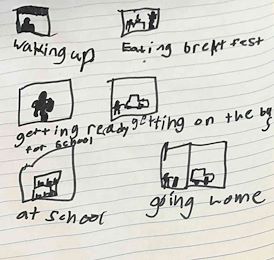 waking up
Eating brekt fest
getting ready
for school
getting on the bus
at school
going home